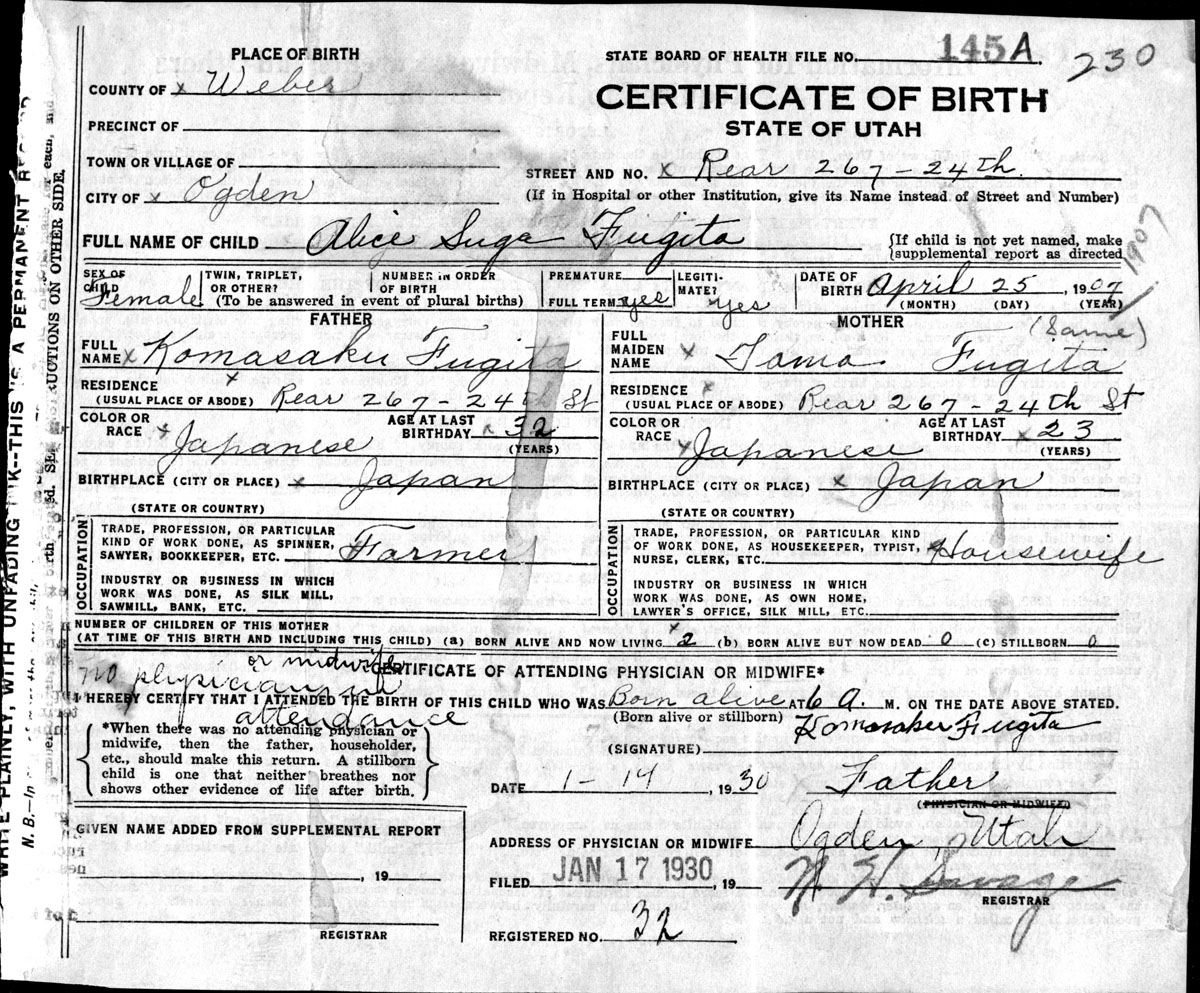 PLACE OF BIRTH
STATE BOARD OF HEALTH FILE NO. 145A 230
COUNTY OF x Weber
CERTIFICATE OF BIRTH
PRECINCT OF
STATE OF UTAH
TOWN OR VILLAGE OF
STREET AND NO. x Rear 267-24th.
CITY OF x Ogden
(If in Hospital or other Institution, give its Name instead of Street and Number)
FULL NAME OF CHILD Alice Suga Fugita
{If child is not yet named, make
supplemental report as directed
1907
SEX OF
CHILD Female
TWIN, TRIPLET,
OR OTHER?
NUMBER IN ORDER
OF BIRTH
(To be answered in event of plural births)
PREMATURE
FULL TERM yes
LEGITI-
MATE? yes
DATE OF
BIRTH April 25, 1907
(MONTH) (DAY) (YEAR)
FATHER
FULL
NAME x Komasaku Fugita
RESIDENCE x
(USUAL PLACE OF ABODE) Rear 267-24th St
COLOR OR
RACE x Japanese
AGE AT LAST
BIRTHDAY x 32
(YEARS)
BIRTHPLACE (CITY OR PLACE) x Japan
(STATE OR COUNTRY)
OCCUPATION
TRADE, PROFESSION, OR PARTICULAR
KIND OF WORK DONE, AS SPINNER,
SAWYER, BOOKKEEPER, ETC. Farmer
INDUSTRY OR BUSINESS IN WHICH
WORK WAS DONE, AS SILK MILL,
SAWMILL, BANK, ETC.
MOTHER
(Same)
FULL
MAIDEN
NAME x Toma Fugita
RESIDENCE x
(USUAL PLACE OF ABODE) Rear 267-24th St
COLOR OR
RACE x Japanese
AGE AT LAST
BIRTHDAY x 23
(YEARS)
BIRTHPLACE (CITY OR PLACE) x Japan
(STATE OR COUNTRY)
OCCUPATION
TRADE, PROFESSION, OR PARTICULAR KIND
OF WORK DONE, AS HOUSEKEEPER, TYPIST,
NURSE, CLERK, ETC. x Housewife
INDUSTRY OR BUSINESS IN WHICH
WORK WAS DONE, AS OWN HOME,
LAWYER'S OFFICE, SILK MILL, ETC.
NUMBER OF CHILDREN OF THIS MOTHER
(AT TIME OF THIS BIRTH AND INCLUDING THIS CHILD) (a) BORN ALIVE AND NOW LIVING x 2 (b) BORN ALIVE BUT NOW DEAD 0 (c) STILLBORN 0
CERTIFICATE OF ATTENDING PHYSICIAN OR MIDWIFE*
No physician or midwife in attendance
I HEREBY CERTIFY THAT I ATTENDED THE BIRTH OF THIS CHILD WHO WAS Born alive AT 6 A. M. ON THE DATE ABOVE STATED.
(Born alive or stillborn)
*When there was no attending physician or
midwife, then the father, householder,
etc., should make this return. A stillborn
child is one that neither breathes nor
shows other evidence of life after birth.
(SIGNATURE) Komasaker Fugita
DATE 1-14, 1930 Father
(PHYSICIAN OR MIDWIFE)
GIVEN NAME ADDED FROM SUPPLEMENTAL REPORT
, 19
REGISTRAR
ADDRESS OF PHYSICIAN OR MIDWIFE Ogden, Utah
FILED JAN 17 1930, 19 W. H. Savage
REGISTRAR
REGISTERED NO. 32
WRITE PLAINLY, WITH UNFADING INK--THIS IS A PERMANENT
UCTIONS ON OTHER SIDE.
N. B.—In